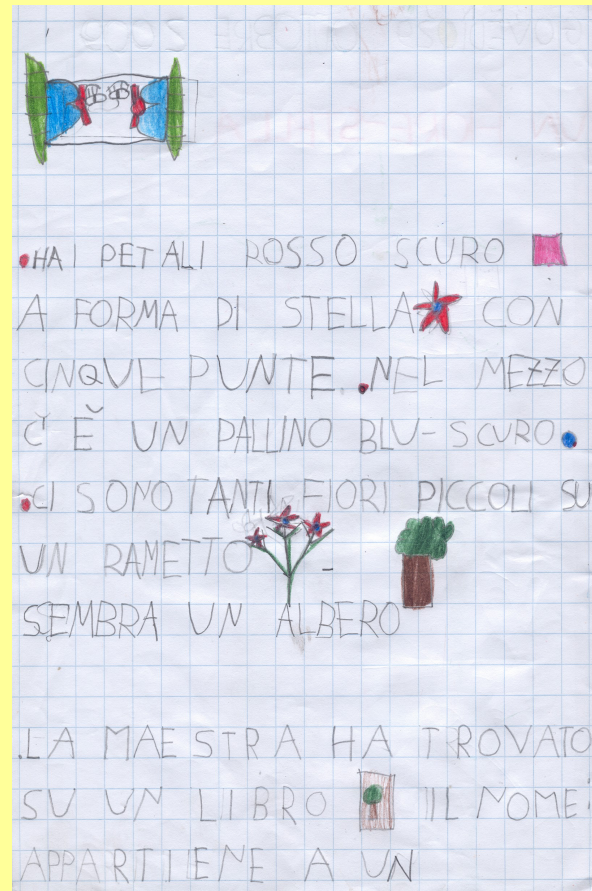 HA I PETALI ROSSO SCURO
A FORMA DI STELLA CON
CINQUE PUNTE. NEL MEZZO
C'È UN PALLINO BLU-SCURO.
CI SONO TANTI FIORI PICCOLI SU
UN RAMETTO
SEMBRA UN ALBERO
LA MAESTRA HA TROVATO
SU UN LIBRO IL NOME:
APPARTIENE A UN